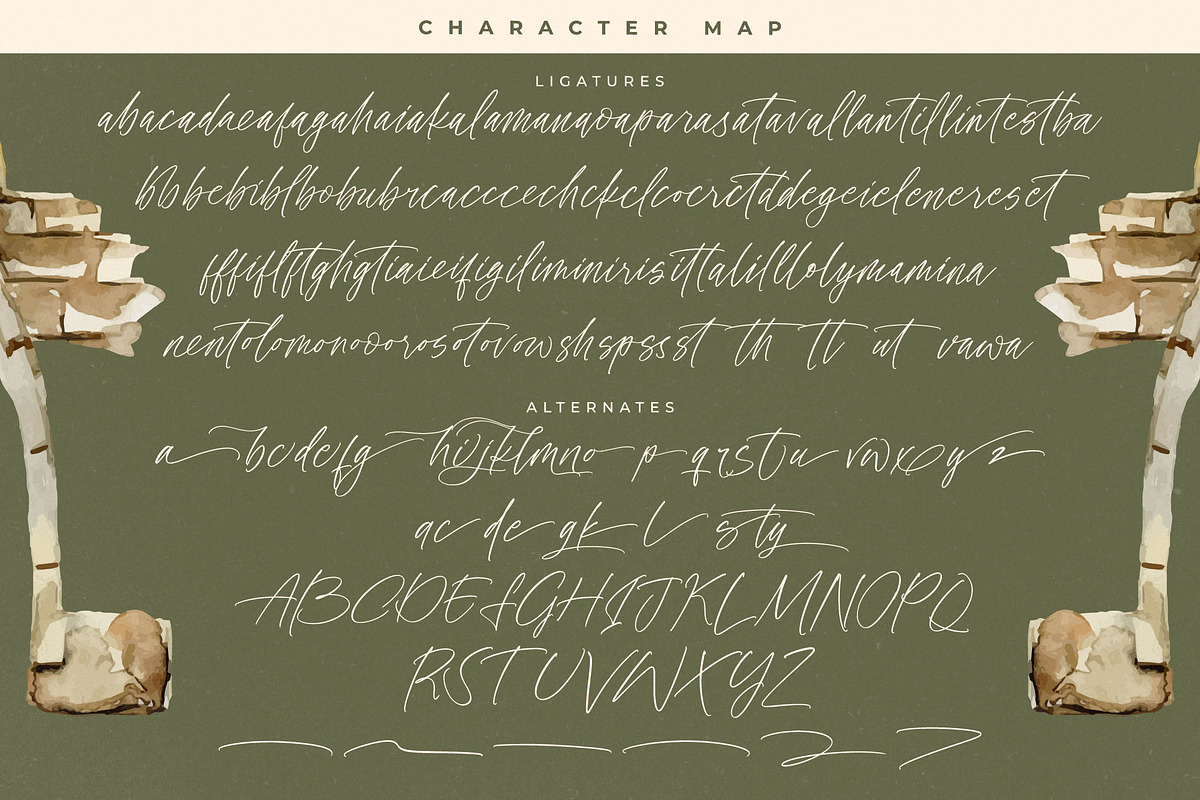 CHARACTER MAP
LIGATURES
abacadaeafagahaiakalamanaoaparasatavallantillintestba
bbbebiblbobubrcacccechckclcocrctddegeielenereset
fffiflftghgtiaieifigiliminirisittalilllolymamina
nentolomonooorosotovowshspssst th tt ut vawa
ALTERNATES
a bcdefg hijklmno p qrstu vwxyz
ac de gk l sty
ABCDEFGHIJKLMNOPQ
RSTUVWXYZ